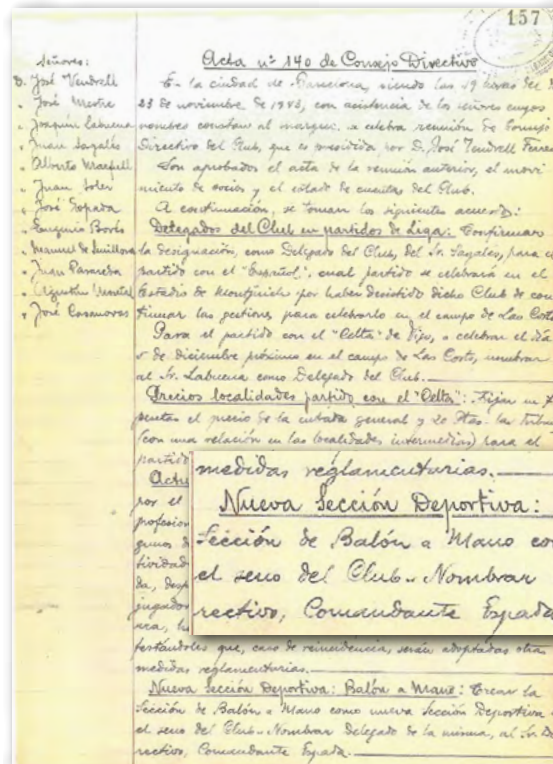 157
Señores:
D. José Vendrell
" José Mestre
" Joaquín Labuena
" Juan Sagalés
" Alberto Maefull
" Juan Soler
" José
" Eugenio Borés
" Manuel de
" Juan
" Agustín Montal
" José Casanovas
Acta nº 140 de Consejo Directivo
En la ciudad de Barcelona, siendo las 19 horas del d
23 de noviembre de 1942, con asistencia de los señores cuyos
nombres constan al margen, se celebra reunión de Consejo
Directivo del Club, que es presidida por D. José Vendrell Ferrer
Son aprobados el acta de la reunión anterior, el movi
miento de socios y el estado de cuentas del Club.
A continuación, se toman los siguientes acuerdos:
Delegados del Club en partidos de Liga: Confirmar
la designación, como Delegado del Club, del Sr. Sagalés, para el
partido con el "Español", cual partido se celebrará en el
Estadio de Montjuich por haber desistido dicho Club de con
tinuar las gestiones para celebrarlo en el campo de Las Corts
Para el partido con el "Celta" de Vigo, a celebrar el día
5 de diciembre próximo en el campo de Las Corts, nombrar
al Sr. Labuena como Delegado del Club.
Precios localidades partido con el "Celta": Fijan en
pesetas el precio de la entrada general y 20 Ptas. las Tribu
(con una relación en las localidades intermedias) para el
partido
Actu
por el
profesion
tividad
da, desp
jugador
medidas reglamentarias.
Nueva Sección Deportiva:
Sección de Balón a Mano co
el seno del Club.- Nombrar
rectivo, Comandante Espada
festándoles que, caso de reincidencia, serán adoptadas otras
medidas reglamentarias.
Nueva Sección Deportiva: Balón a Mano: Crear la
Sección de Balón a Mano como nueva Sección Deportiva
el seno del Club.- Nombrar Delegado de la misma, al Sr. Di
rectivo, Comandante Espada.